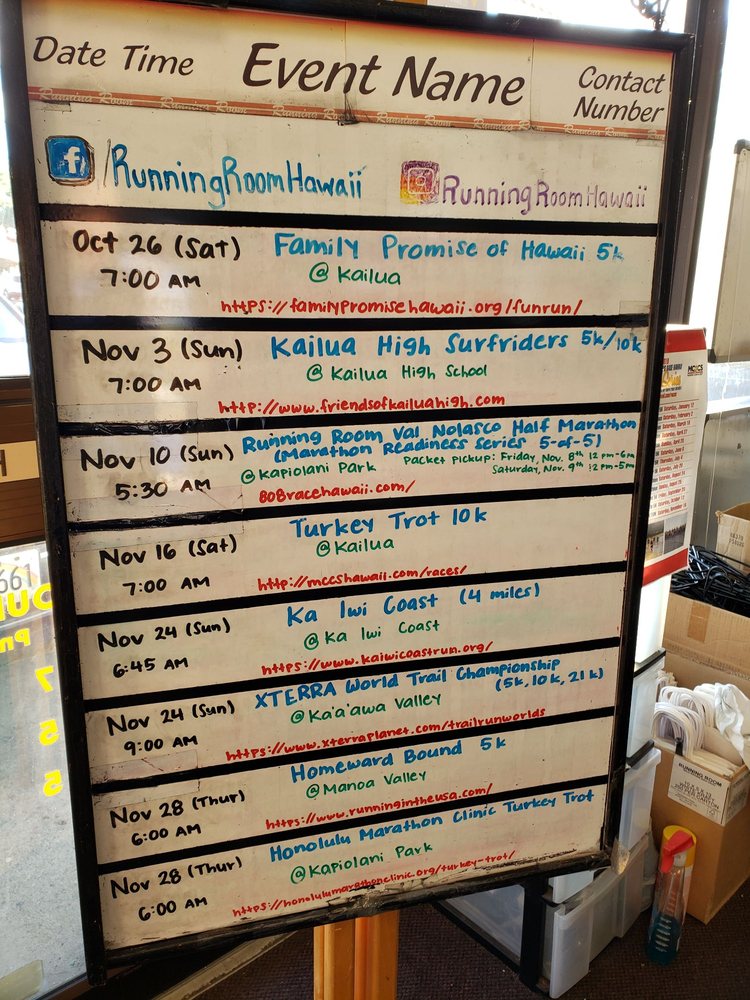 Date Time Event Name Contact Number
Running Room Running Room Running Room Running Room
f/RunningRoomHawaii RunningRoomHawaii
Oct 26 (Sat) Family Promise of Hawaii 5k
7:00 AM @ Kailua
https://familypromisehawaii.org/funrun/
Nov 3 (Sun) Kailua High Surfriders 5k/10k
7:00 AM @ Kailua High School
http://www.friendsofkailuahigh.com
Nov 10 (Sun) Running Room Val Nolasco Half Marathon
(Marathon Readiness Series 5-of-5)
5:30 AM @Kapiolani Park Packet Pickup: Friday, Nov. 8th 12pm-6pm
Saturday, Nov. 9th 12pm-5pm
808racehawaii.com/
Nov 16 (Sat) Turkey Trot 10k
@Kailua
7:00 AM http://mccshawaii.com/races/
Nov 24 (Sun) Ka Iwi Coast (4 miles)
@ Ka Iwi Coast
6:45 AM https://www.kaiwicoastrun.org/
Nov 24 (Sun) XTERRA World Trail Championship
(5k, 10k, 21k)
@Ka'a'awa Valley
9:00 AM https://www.xterraplanet.com/trailrunworlds
Nov 28 (Thur) Homeward Bound 5k
@Manoa Valley
6:00 AM https://www.runningintheusa.com/
Nov 28 (Thur) Honolulu Marathon Clinic Turkey Trot
@Kapiolani Park
6:00 AM https://honolulumarathonclinic.org/turkey-trot/
661
7
5
5
MCCS
RUNNING ROOM